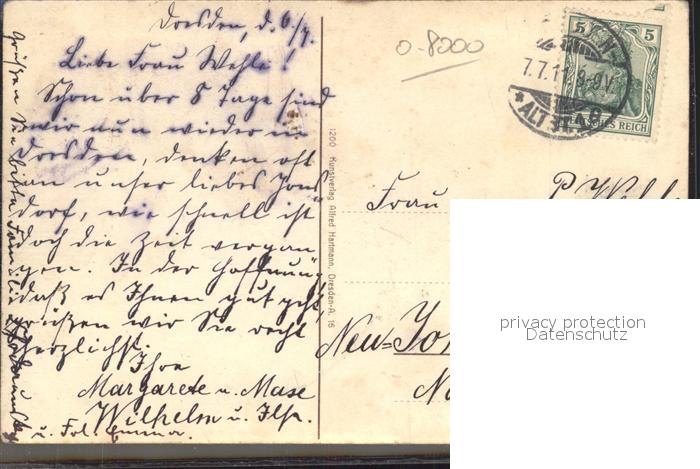 Dresden, d. 6./7.
Liebe Frau Wehle!
Schon über 8 Tage sind
wir nun wieder in
Dresden, denken oft
an unser liebes Jons
dorf, wie schnell ist
doch die Zeit vergan
gen. In der Hoffnung
daß es Ihnen gut geht,
grüßen wir Sie recht
herzlichst.
Ihre
Margarete u. Mase
Wilhelm u. Ilse.
u. Frl. Emma.
Grüßen Sie bitte Familie
1200 Kunstverlag Alfred Hartmann, Dresden-A. 16
o-8000
5 5
7.7.11. 8-9V.
* ALTST.
REICH
Frau P. Wehle
Neu=Jo
privacy protection
Datenschutz